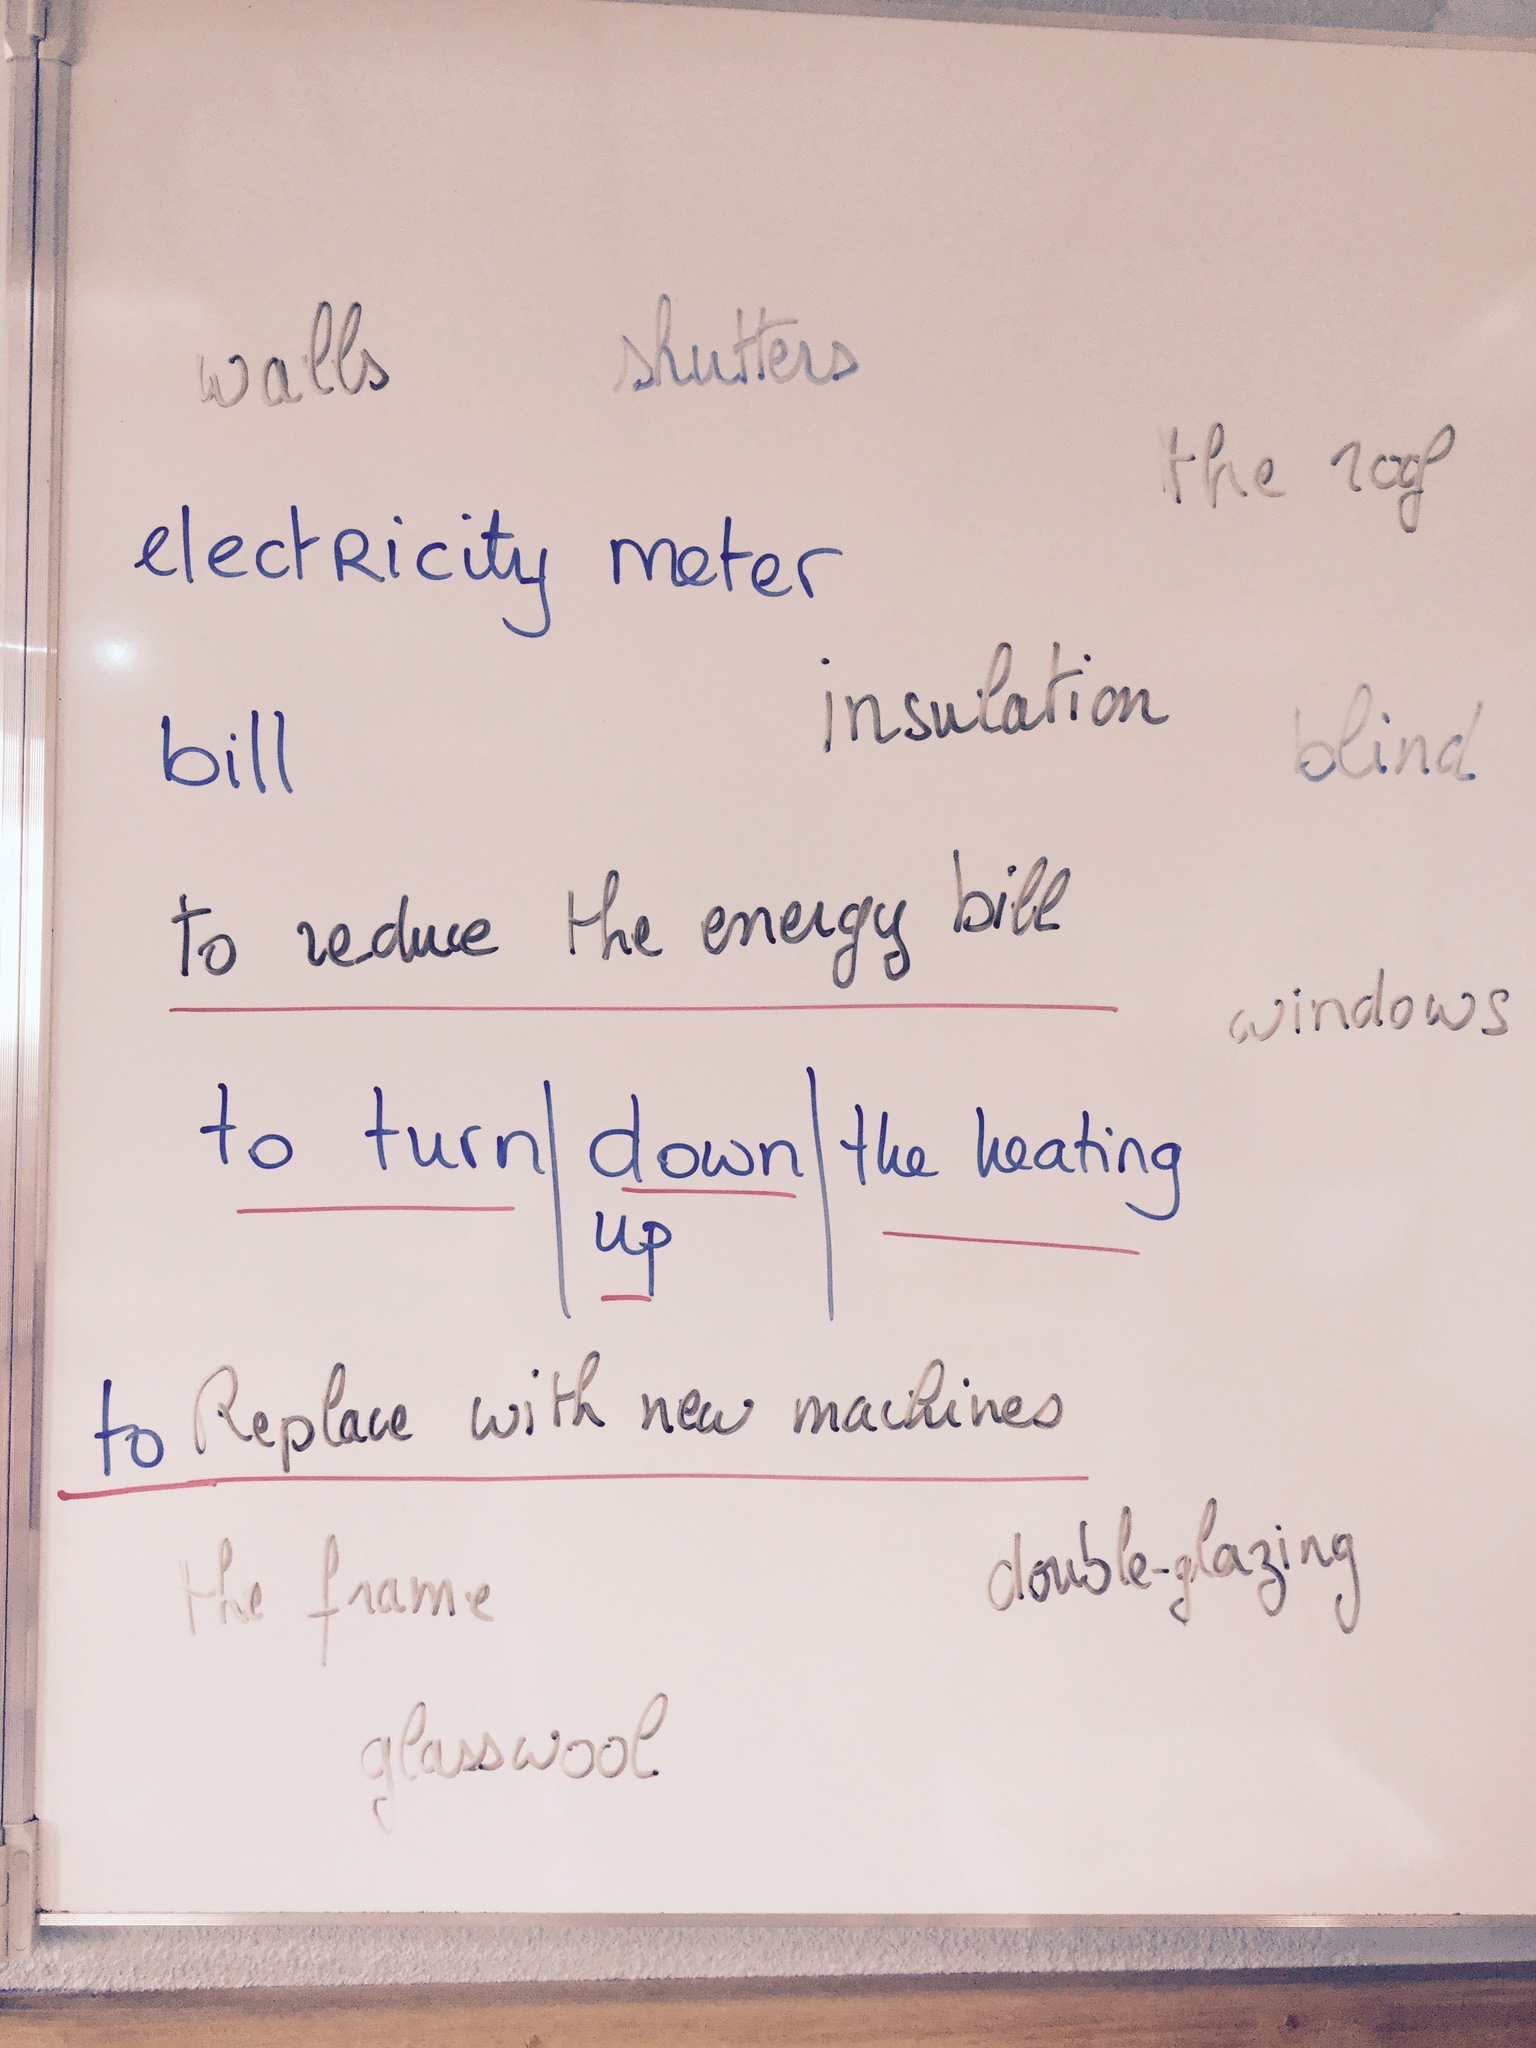 walls shutters
the roof
electricity meter
insulation
bill blind
to reduce the energy bill
windows
to turn | down | the heating
up
to Replace with new machines
the frame double-glazing
glasswool